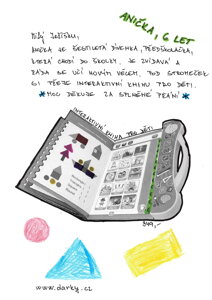 ANIČKA, 6 LET
MILÝ JEŽÍŠKU,
ANIČKA JE ŠESTILETÁ DÍVENKA, PŘEDŠKOLAČKA,
KTERÁ CHODÍ DO ŠKOLKY. JE ZVÍDAVÁ A
RÁDA SE UČÍ NOVÝM VĚCEM. POD STROMEČEK
SI PŘEJE INTERAKTIVNÍ KNIHU PRO DĚTI.
*MOC DĚKUJE ZA SPLNĚNÉ PŘÁNÍ*
INTERAKTIVNÍ KNIHA PRO DĚTI
849,-
www.darky.cz